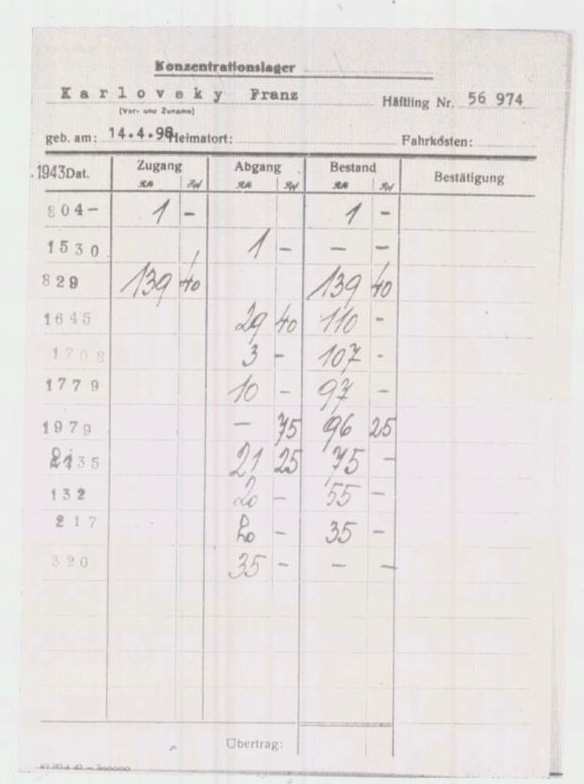 Konzentrationslager
Karlovsky Franz Häftling Nr. 56 974
(Vor- und Zuname)
geb. am: 14.4.98 Heimatort: Fahrkosten:
1943 Dat. Zugang Abgang Bestand Bestätigung
RM Rpf RM Rpf RM Rpf
804- 1 - 1 -
1530 1 - - -
829 139 40 139 40
1645 29 40 110 -
1708 3 - 107 -
1779 10 - 97 -
1979 - 75 96 25
2135 21 25 75 -
132 20 - 55 -
217 20 - 35 -
320 35 - - -
Übertrag: